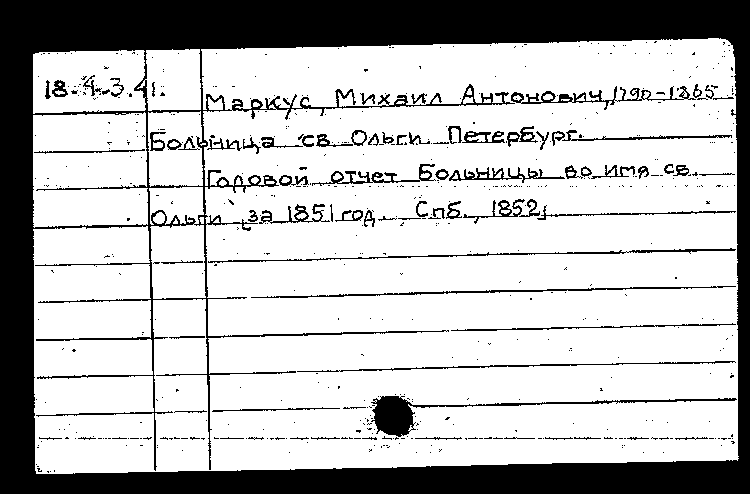 18.4.3.41. Маркус, Михаил Антонович, 1790-1865
Больница св Ольги. Петербург.
Годовой отчет Больницы во имя св.
Ольги [за 1851 год. Спб., 1852]